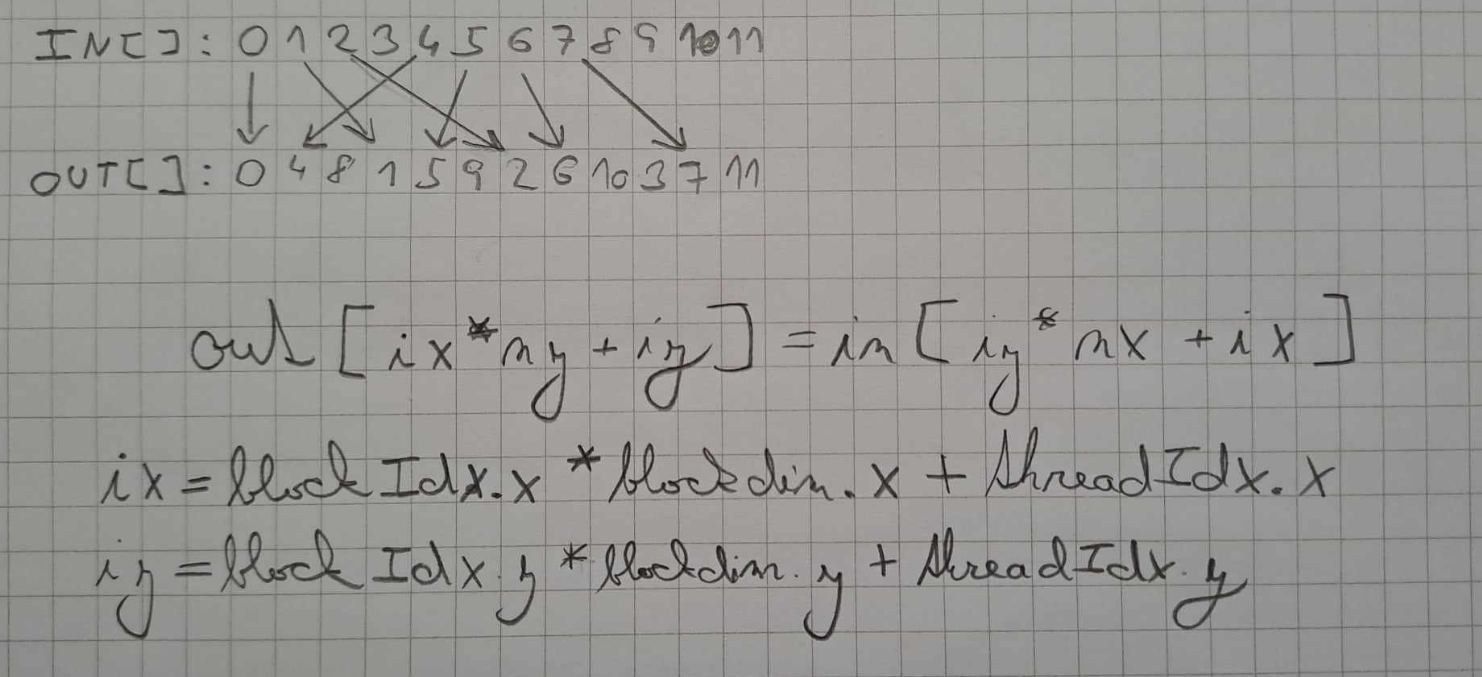 IN[]: 0 1 2 3 4 5 6 7 8 9 10 11
OUT[]: 0 4 8 1 5 9 2 6 10 3 7 11
out [ix*ny + iy] = in [iy* nx + ix]
ix = block Idx.x * blockdim.x + threadIdx.x
iy = block Idx.y * blockdim.y + threadIdx.y